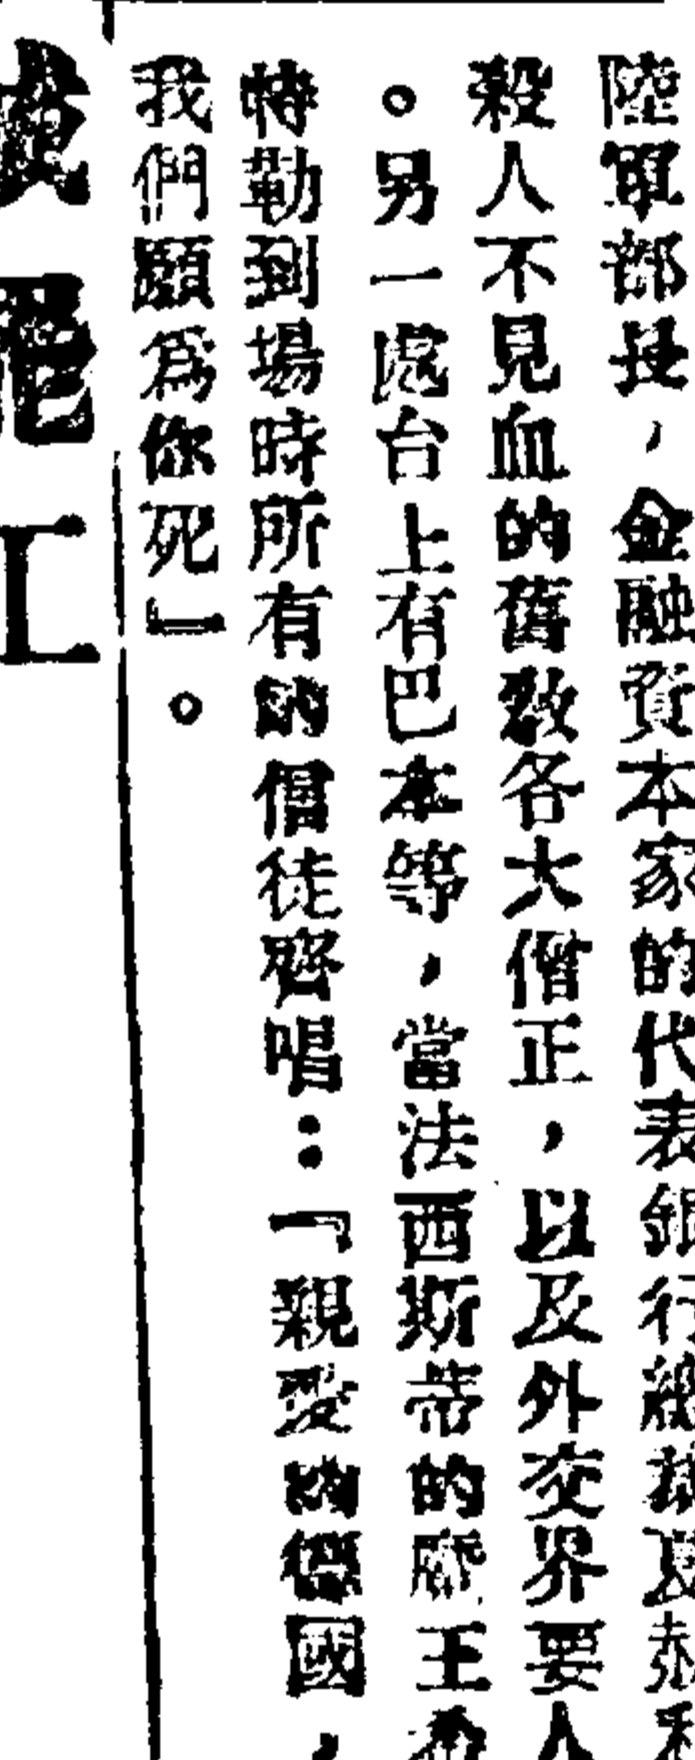 陸軍部長，金融資本家的代表銀行總裁夏赫
殺人不見血的舊教各大僧正，以及外交界要人
。另一處台上有巴本等，當法西斯蒂的魔王希
特勒到場時所有的僧徒齊唱：『親愛的德國，
我們願為你死』。
工